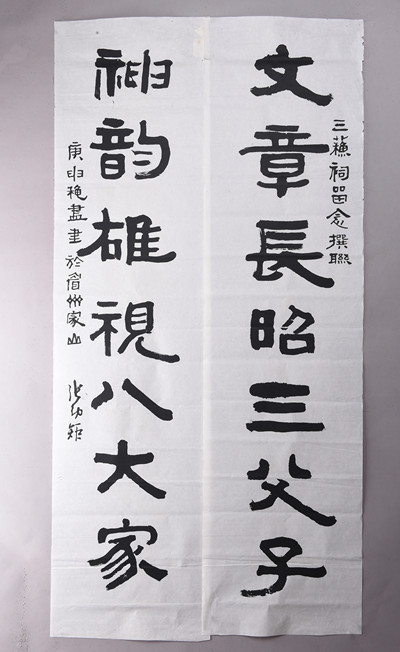 三蘇祠留念撰聯
文章長昭三父子
神韵雄視八大家
庚申穐盡書於眉州家山
張幼矩